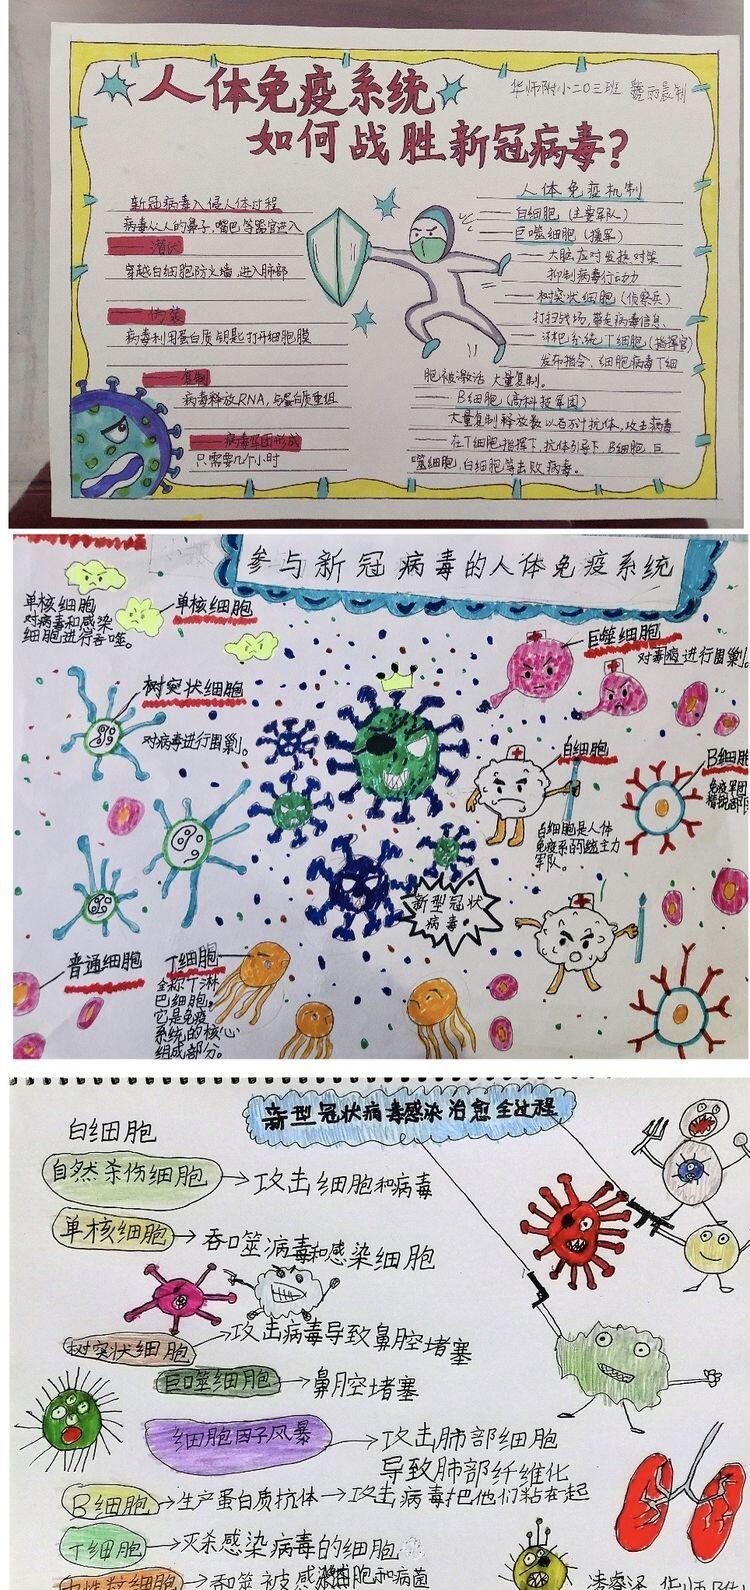 人体免疫系统
如何战胜新冠病毒?
华师附小二〇三班
新冠病毒入侵人体过程
病毒从人的鼻子,嘴巴等器官进入
——潜伏
穿越白细胞防火墙,进入肺部
——伪装
病毒利用蛋白质钥匙打开细胞膜
——复制
病毒释放RNA,与蛋白质重组
——病毒军团形成
只需要几个小时
人体免疫机制
——白细胞(主要军队)
——巨噬细胞(援军)
——大脑应对发热对策
抑制病毒行动力
——树突状细胞(侦察兵)
打扫战场,带走病毒信息
——淋巴系统T细胞(指挥官)
发布指令,细胞病毒T细
胞被激活 大量复制。
——B细胞(高科技军团)
大量复制释放数以百万计抗体,攻击病毒
——在T细胞指挥下,抗体引导下,B细胞,巨
噬细胞,白细胞等击败病毒。
参与新冠病毒的人体免疫系统
单核细胞
对病毒和感染
细胞进行吞噬。
单核细胞
树突状细胞
对病毒进行围剿。
巨噬细胞
对毒瘤进行围剿。
白细胞
白细胞是人体
免疫系的主力
军队。
B细胞
免疫军团
精锐部队
新型冠状
病毒
普通细胞
T细胞
全称T淋
巴细胞,
它是免疫
系统的核心
组成部分。
新型冠状病毒感染治愈全过程
白细胞
自然杀伤细胞→攻击细胞和病毒
单核细胞→吞噬病毒和感染细胞
树突状细胞→攻击病毒导致鼻腔堵塞
巨噬细胞→鼻腔堵塞
细胞因子风暴→攻击肺部细胞
导致肺部纤维化
B细胞→生产蛋白质抗体→攻击病毒把他们粘在起
T细胞→灭杀感染病毒的细胞
中性粒细胞→吞噬被感染细胞和病菌